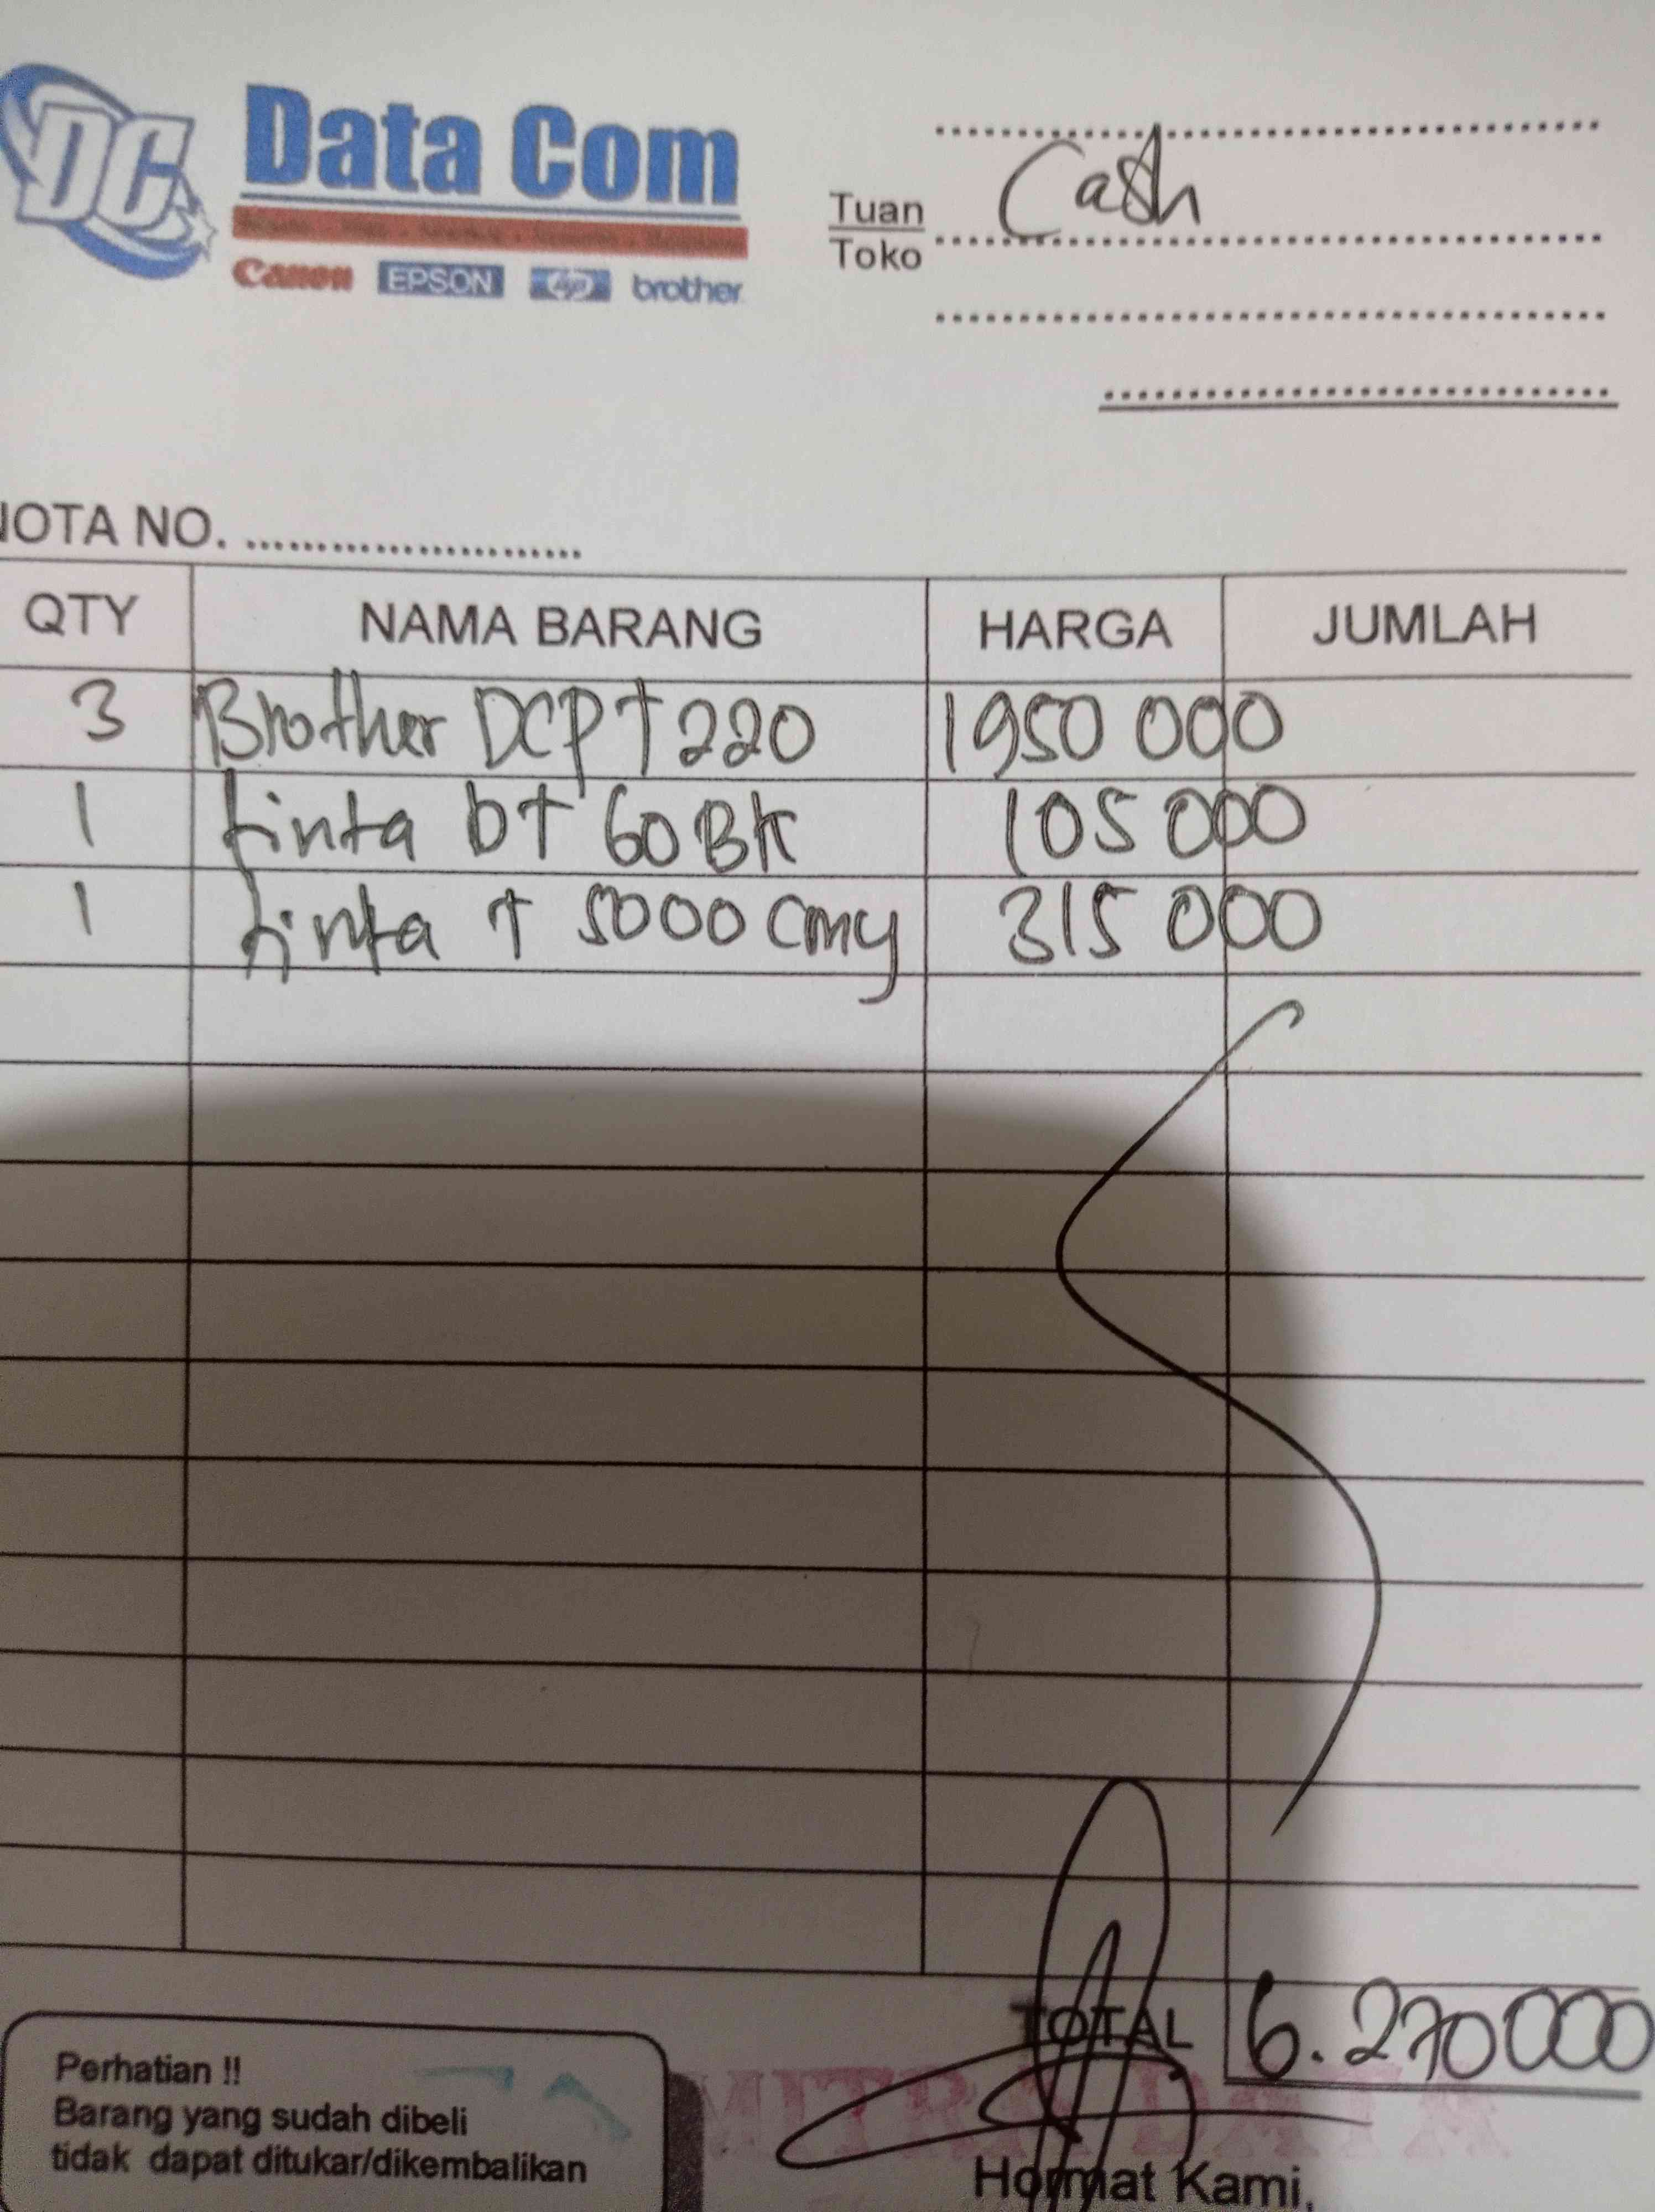 DC
Data Com
Canon EPSON hp brother
Tuan
Toko
Cash
NOTA NO. ........................
QTY NAMA BARANG HARGA JUMLAH
3 Brother DCP T 220 1950 000
1 tinta bt 60 BK 105 000
1 tinta t 5000 cmy 315 000
TOTAL 6.270000
Perhatian !!
Barang yang sudah dibeli
tidak dapat ditukar/dikembalikan
Hormat Kami,